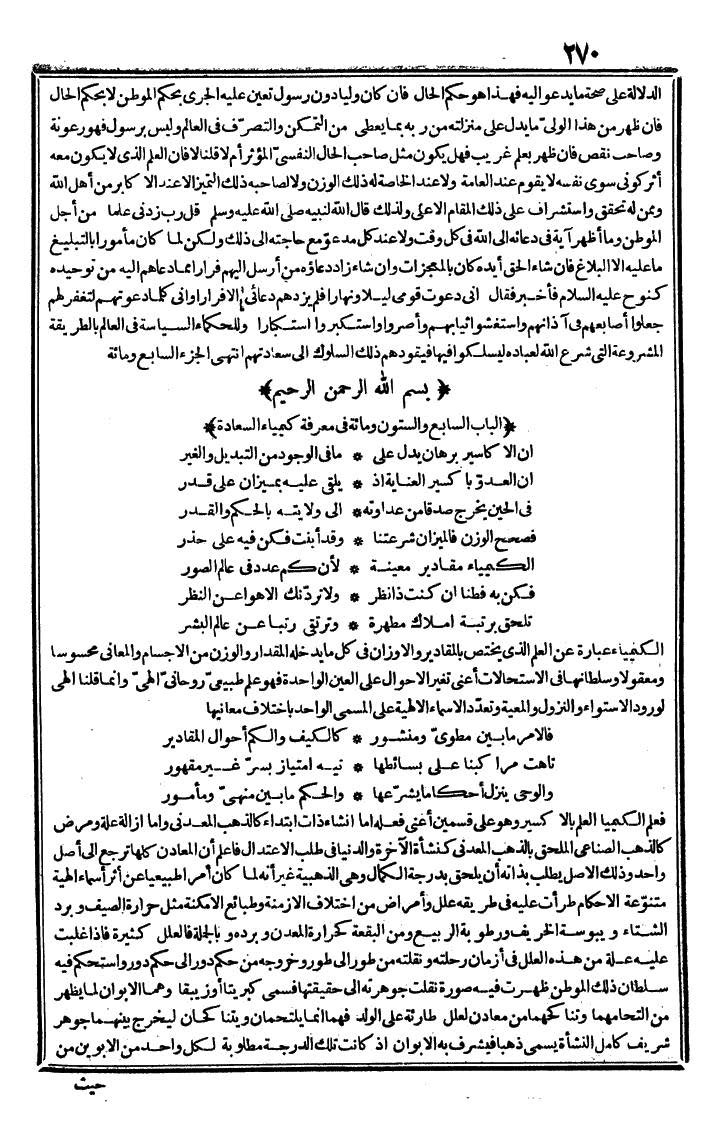 ٢٧٠
الدلالة على صحة ما يدعو اليه فهذا هو حكم الحال فان كان وليا دون رسول تعين عليه الجرى بحكم الموطن لا بحكم الحال
فان ظهر من هذا الولىّ ما يدل على منزلته من ربه بما يعطى من التمكن والتصرّف فى العالم وليس برسول فهو رعونة
وصاحب نقص فان ظهر بعلم غريب فهل يكون مثل صاحب الحال النفسىّ المؤثر أم لا قلنا لا فان العلم الذى لا يكون معه
أثر كونى سوى نفسه لا يقوم عند العامة ولا عند الخاصة له ذلك الوزن ولا لصاحبه ذلك التميز الا عند الاكابر من أهل الله
وبمن له تحقق واستشراف على ذلك المقام الاعلى ولذلك قال الله لنبيه صلى الله عليه وسلم قل رب زدنى علما من أجل
الموطن وما أظهر آية فى دعائه الى الله فى كل وقت ولا عند كل مدعوّ مع حاجته الى ذلك ولكن لما كان مأمورا بالتبليغ
ما عليه الا البلاغ فان شاء الحق أيده كان بالمعجزات وان شاء زاد دعاؤه من أرسل اليهم فرارا مما دعاهم اليه من توحيده
كنوح عليه السلام فأخبر فقال انى دعوت قومى ليلا ونهارا فلم يزدهم دعائى الا فرارا وانى كلما دعوتهم لتغفر لهم
جعلوا أصابعهم فى آذانهم واستغشوا ثيابهم وأصروا واستكبروا استكبارا وللحكماء السياسة فى العالم بالطريقة
المشروعة التى شرع الله لعباده ليسلكوا فيها فيقودهم ذلك السلوك الى سعادتهم انتهى الجزء السابع ومائة
﴿ بسم الله الرحمن الرحيم ﴾
﴿الباب السابع والستون ومائة فى معرفة كيمياء السعادة﴾
ان الاكاسير برهان يدل على * ما فى الوجود من التبديل والغير
ان العدوّ باكسير العناية اذ * يلقى عليه بميزان على قدر
فى الحين يخرج صدقا من عداوته * الى ولايته بالحكم والقدر
فصحح الوزن فالميزان شرعتنا * وقد أبنت فكن فيه على حذر
الكيمياء مقادير معينة * لأن كم عدد فى عالم الصور
فكن به فطنا ان كنت ذا نظر * ولا تردّنك الاهوا عن النظر
تلحق برتبة املاك مطهرة * وترتقى رتبا عن عالم البشر
الكيمياء عبارة عن العلم الذى يختص بالمقادير والاوزان فى كل ما يدخله المقدار والوزن من الاجسام والمعانى محسوسا
ومعقولا وسلطانها فى الاستحالات أعنى تغير الاحوال على العين الواحدة فهو علم طبيعىّ روحانىّ الهىّ وانما قلنا الهى
لورود الاستواء والنزول والمعية وتعدّد الاسماء الالهية على المسمى الواحد باختلاف معانيها
فالامر ما بين مطوىّ ومنشور * كالكيف والكم أحوال المقادير
تاهت مراكبنا على بسائطها * تيه امتياز بسرّ غير مقهور
والوحى ينزل أحكاما يشرّعها * والحكم ما بين منهىّ ومأمور
فعلم الكيميا العلم بالاكسير وهو على قسمين أعنى فعله اما انشاء ذات ابتداء كالذهب المعدنى واما ازالة علة ومرض
كالذهب الصناعى الملحق بالذهب المعدنى كنشأة الآخرة والدنيا فى طلب الاعتدال فاعلم أن المعادن كلها ترجع الى أصل
واحد وذلك الاصل يطلب بذاته أن يلحق بدرجة الكمال وهى الذهبية غير أنه لما كان أمرا طبيعيا عن أثر أسماء الهية
متنوّعة الاحكام طرأت عليه فى طريقه علل وأمراض من اختلاف الازمنة وطبائع الامكنة مثل حرارة الصيف وبرد
الشتاء ويبوسة الخريف ورطوبة الربيع ومن البقعة كحرارة المعدن وبرده وبالجملة فالعلل كثيرة فاذا غلبت
عليه علة من هذه العلل فى أزمان رحلته ونقلته من طور الى طور وخروجه من حكم دور الى حكم دور واستحكم فيه
سلطان ذلك الموطن ظهرت فيه صورة نقلت جوهرته الى حقيقتها فسمى كبريتا أو زيبقا وهما الابوان لما يظهر
من التحامهما وتناكحهما من معادن لعلل طارئة على الولد فهما انما يلتحمان ويتناكحان ليخرج بينهما جوهر
شريف كامل النشأة يسمى ذهبا فيشرف به الابوان اذ كانت تلك الدرجة مطلوبة لكل واحد من الابوين من
حيث